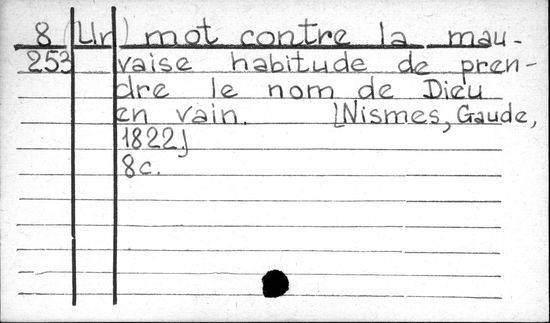 8 (Un) mot contre la mau-
253 vaise habitude de pren-
dre le nom de Dieu
en vain. [Nismes, Gaude,
1822]
8c.